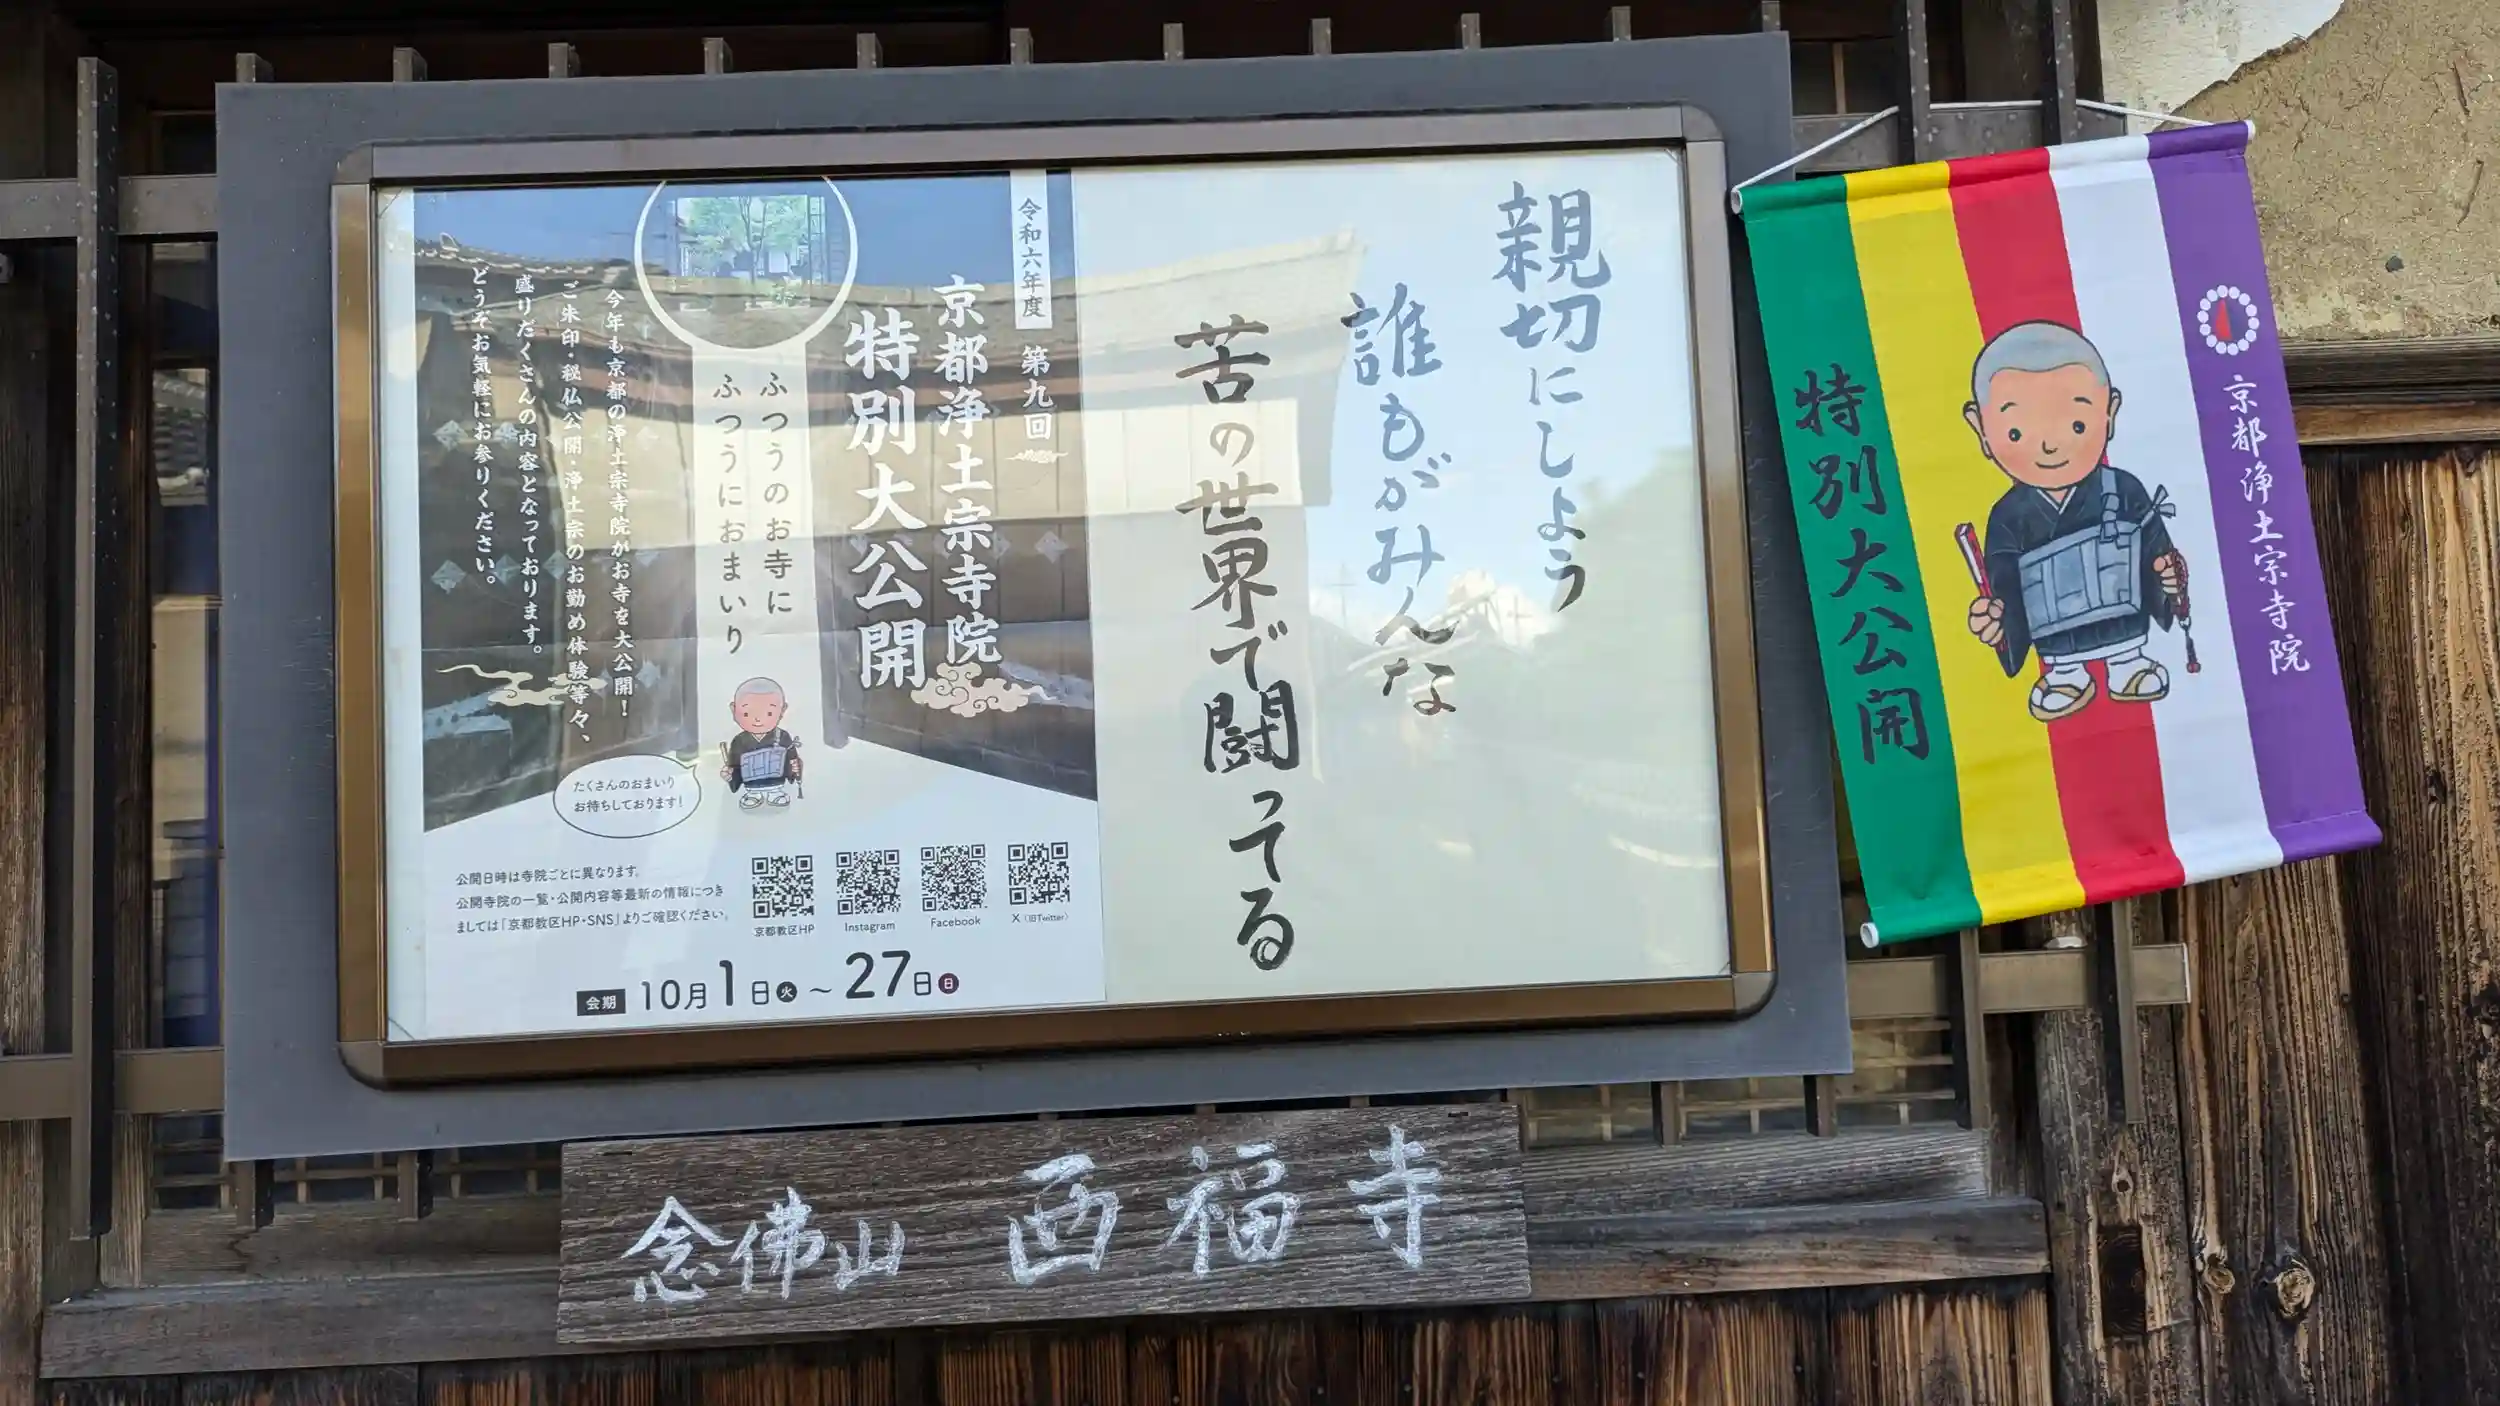 親切にしよう
誰もがみんな
苦の世界で闘ってる
令和六年度
第九回
京都浄土宗寺院
特別大公開
ふつうのお寺に
ふつうにおまいり
今年も京都の浄土宗寺院がお寺を大公開!
ご朱印・秘仏公開・浄土宗のお勤め体験等々、
盛りだくさんの内容となっております。
どうぞお気軽にお参りください。
たくさんのおまいり
お待ちしております!
公開日時は寺院ごとに異なります。
公開寺院の一覧・公開内容等最新の情報につき
ましては「京都教区HP・SNS」よりご確認ください。
京都教区HP
Instagram
Facebook
X(旧Twitter)
会期 10月1日火〜27日日
京都浄土宗寺院
特別大公開
念佛山 西福寺